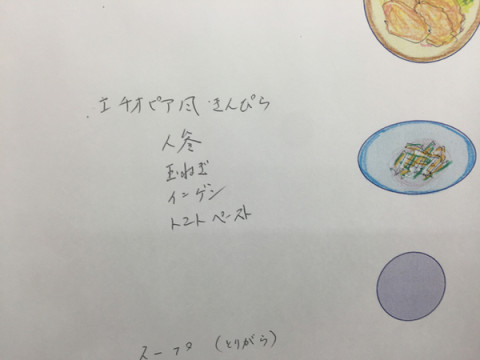 エチオピア風きんぴら
人参
玉ねぎ
インゲン
トマトペースト
スープ (とりがら)